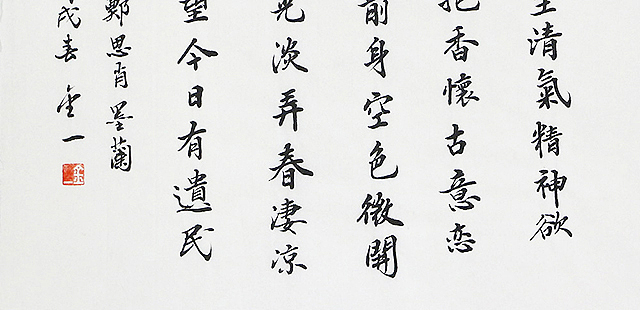 至清氣精神欲
抱香懷古意恋
前身空色微開
光淡弄春淒涼
望今日有遺民
鄭思肖墨蘭
戌春金一